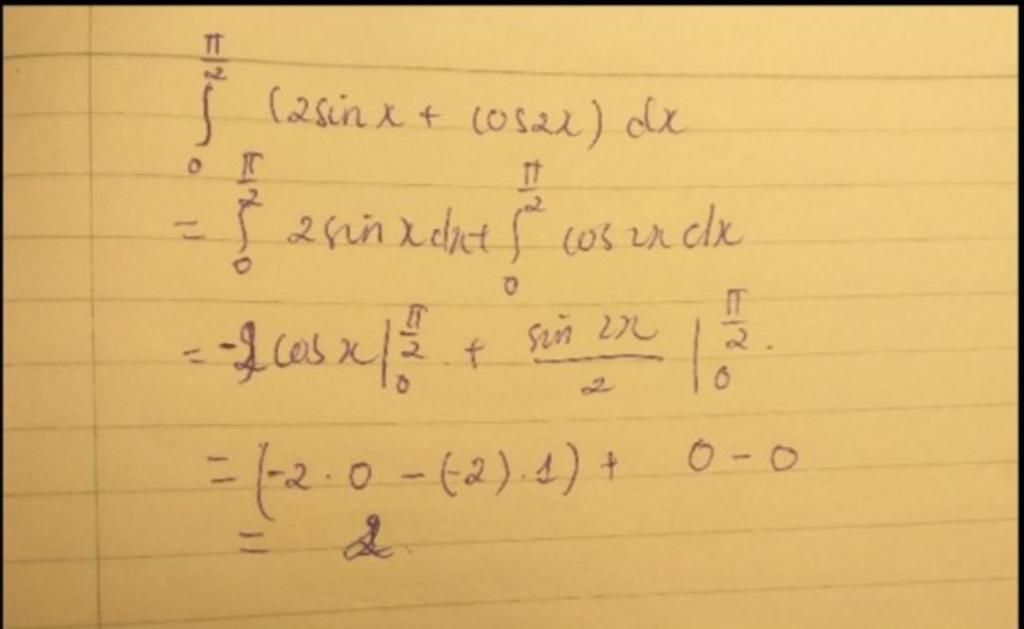 ∫₀^{π/2} (2sin x + cos2x) dx
= ∫₀^{π/2} 2 sin x dx + ∫₀^{π/2} cos 2x dx
= -2 cos x |₀^{π/2} + sin 2x / 2 |₀^{π/2} .
= (-2 · 0 - (-2) . 1) + 0 - 0
= 2